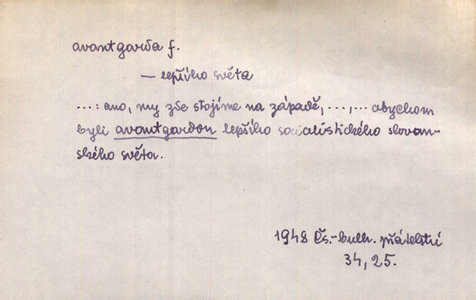 avantgarda f.
— lepšího světa
...: ano, my zde stojíme na západě, ..., ... abychom
byli avantgardou lepšího socialistického slovan-
ského světa.
1948 Čs.-bulh. přátelství
34, 25.